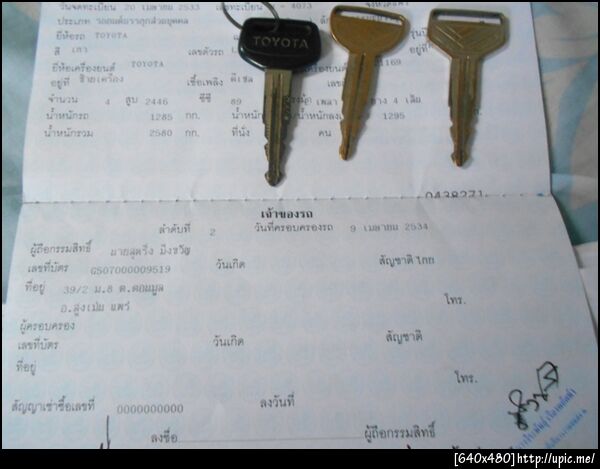 วันจดทะเบียน 20 เมษายน 2533 เลขทะเบียน - 4073 จังหวัด
ประเภท รถยนต์บรรทุกส่วนบุคคล
ยี่ห้อรถ TOYOTA รุ่นปี
สี เทา เลขตัวรถ
ยี่ห้อเครื่องยนต์ TOYOTA 1169
อยู่ที่ ซ้ายเครื่อง เชื้อเพลิง ดีเซล
จำนวน 4 สูบ 2446 ซีซี 89 เพลา ยาง 4 เส้น
น้ำหนักรถ 1285 กก. น้ำหนัก น้ำหนักลง 1295
น้ำหนักรวม 2580 กก. ที่นั่ง คน
TOYOTA
0438271
เจ้าของรถ
ลำดับที่ 2 วันที่ครอบครองรถ 9 เมษายน 2534
ผู้ถือกรรมสิทธิ์ นายสุดริ่ง มิ่งขวัญ
เลขที่บัตร G507000009519 วันเกิด สัญชาติ ไทย
ที่อยู่ 39/2 ม.8 ต.ดอนมูล โทร.
อ.สูงเม่น แพร่
ผู้ครอบครอง
เลขที่บัตร วันเกิด สัญชาติ
ที่อยู่
โทร.
สัญญาเช่าซื้อเลขที่ 0000000000 ลงวันที่
ลงชื่อ ผู้ถือกรรมสิทธิ์
[640x480]http://upic.me/